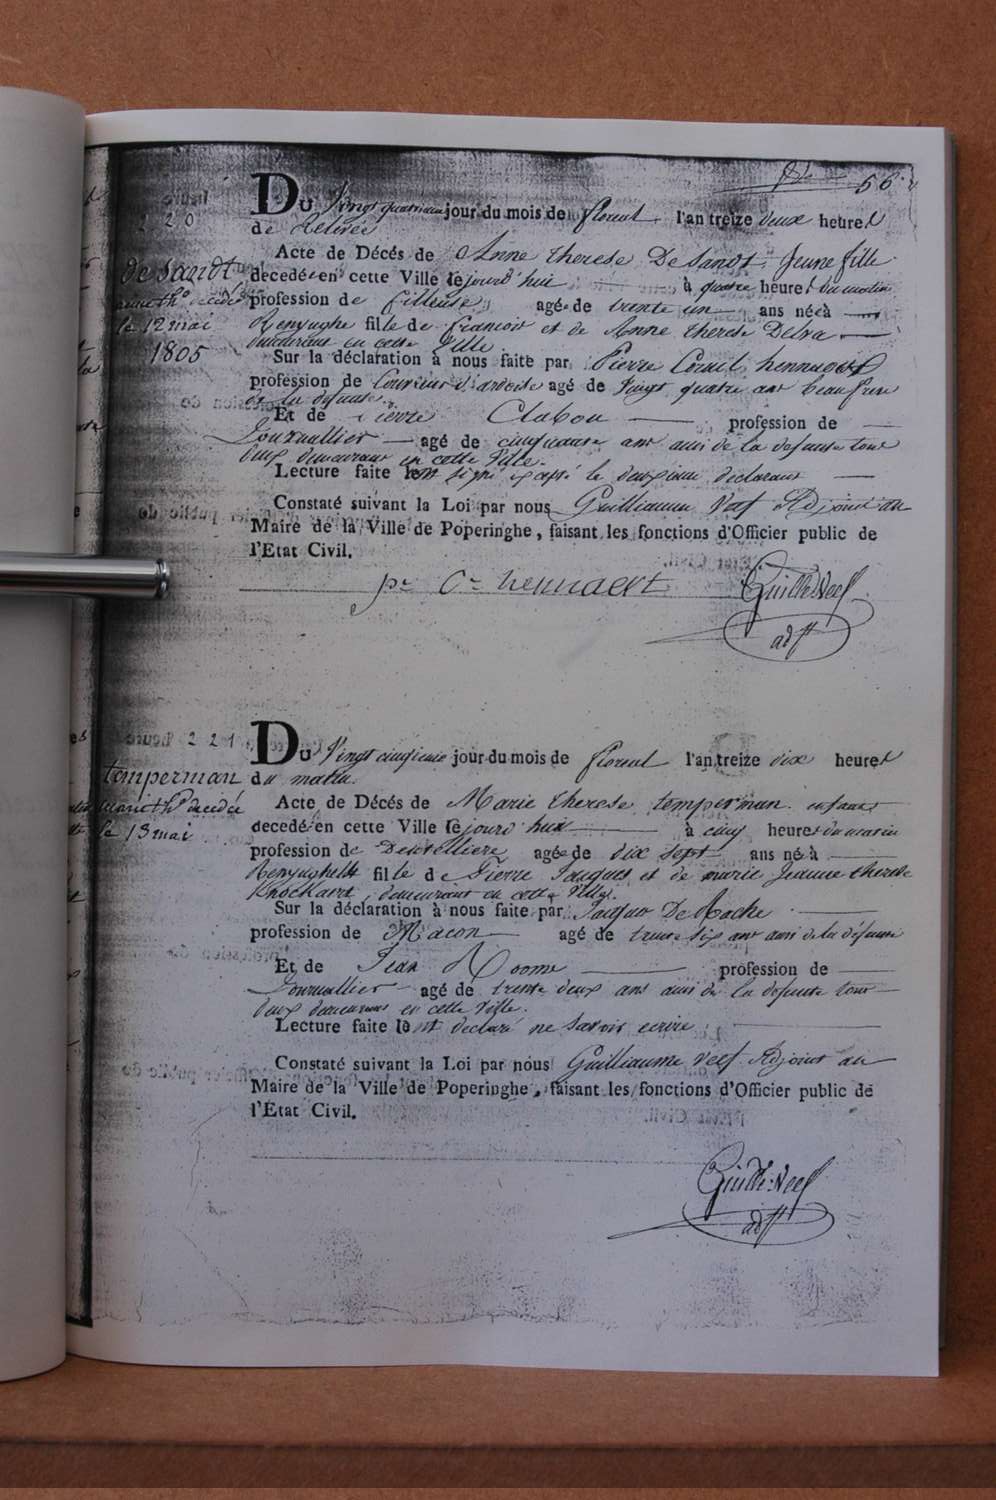 56
220
Du Vingt quatrieme jour du mois de floreal l'an treize deux heures
de Relevée
de Sandt
decedé
le 12 mai
1805
Acte de Décés de Anne therese De Sandt, Jeune fille
decedé en cette Ville le jourd'hui à quatre heures du matin
profession de fileuse agée de trente un ans né à
Renynghe fille de francois et de Anne therese Delva
demeurant en cette Ville.
Sur la déclaration à nous faite par Pierre Cornil hennaert
profession de Couvreur d'ardoise agé de Vingt quatre ans beaufrere
de la defunte.
Et de Pierre Clabou profession de
Journallier agé de cinquante ans ami de la defunte tous
deux demeurant en cette Ville.
Lecture faite le ont signé excepté le deuxieme declarant
Constaté suivant la Loi par nous Guilliaume Neef Adjoint au
Maire de la Ville de Poperinghe, faisant les fonctions d'Officier public de
l'Etat Civil.
pe Ce hennaert
Guille Neef
adjt
221
Du Vingt cinquieme jour du mois de floreal l'an treize dix heures
du matin.
temperman
marie the decedée
le 13 mai
Acte de Décés de Marie therese temperman enfant
decedé en cette Ville le jourd'hui à cinq heures du matin
profession de Dentelliere agée de dix sept ans né à
Renynghelst fille de Pierre Jacques et de marie Jeanne therese
Knockaert, demeurant en cette Ville.
Sur la déclaration à nous faite par Jacques De Rache
profession de Macon agé de trente six ans ami de la défunte
Et de Jean Roome profession de
Journallier agé de trente deux ans ami de la defunte tous
deux demeurans en cette Ville.
Lecture faite le ont declaré ne savoir ecrire
Constaté suivant la Loi par nous Guilliaume Neef Adjoint au
Maire de la Ville de Poperinghe, faisant les fonctions d'Officier public de
l'Etat Civil.
Guille Neef
adjt